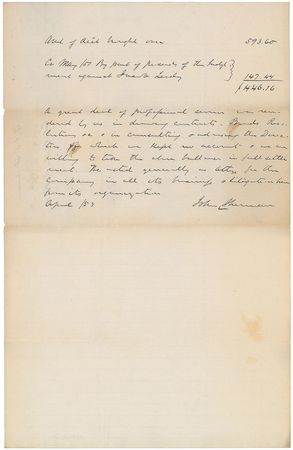 Amt of acct brought over 593.60
Cr May /50 By part of proceeds of the judg-
ment against 147.44
$446.16
A great deal of professional service was ren-
dered by us in drawing contracts Bonds Reso-
lutions &c & in consulting & advising the Direc-
tors of which we kept no account & we are
willing to take the above balance in full settle-
ment. We acted generally as attys for the
Company in all its business & litigation
from its organization
April /53 John Sherman